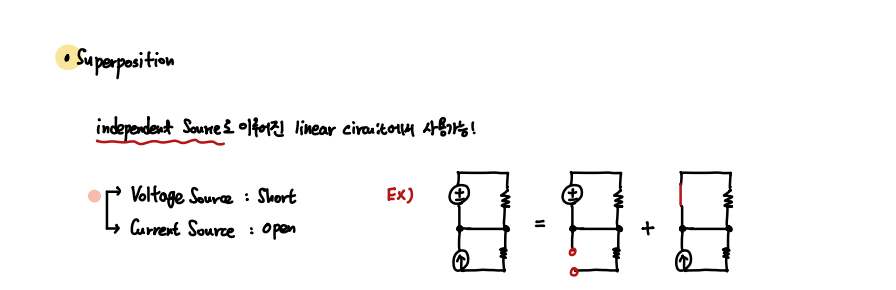 • Superposition
independent Source로 이루어진 linear circuit에서 사용가능!
Voltage Source : Short
Current Source : open
Ex)
= +